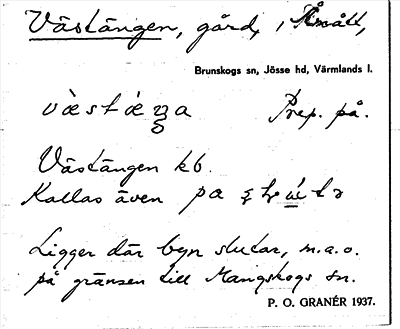 Västängen, gård, i Åmått,
Brunskogs sn, Jösse hd, Värmlands l.
Prep. på.
Västängen kb.
Kallas även pa
Ligger där byn slutar, m.a.o.
på gränsen till Mangskogs sn.
P. O. GRANÉR 1937.